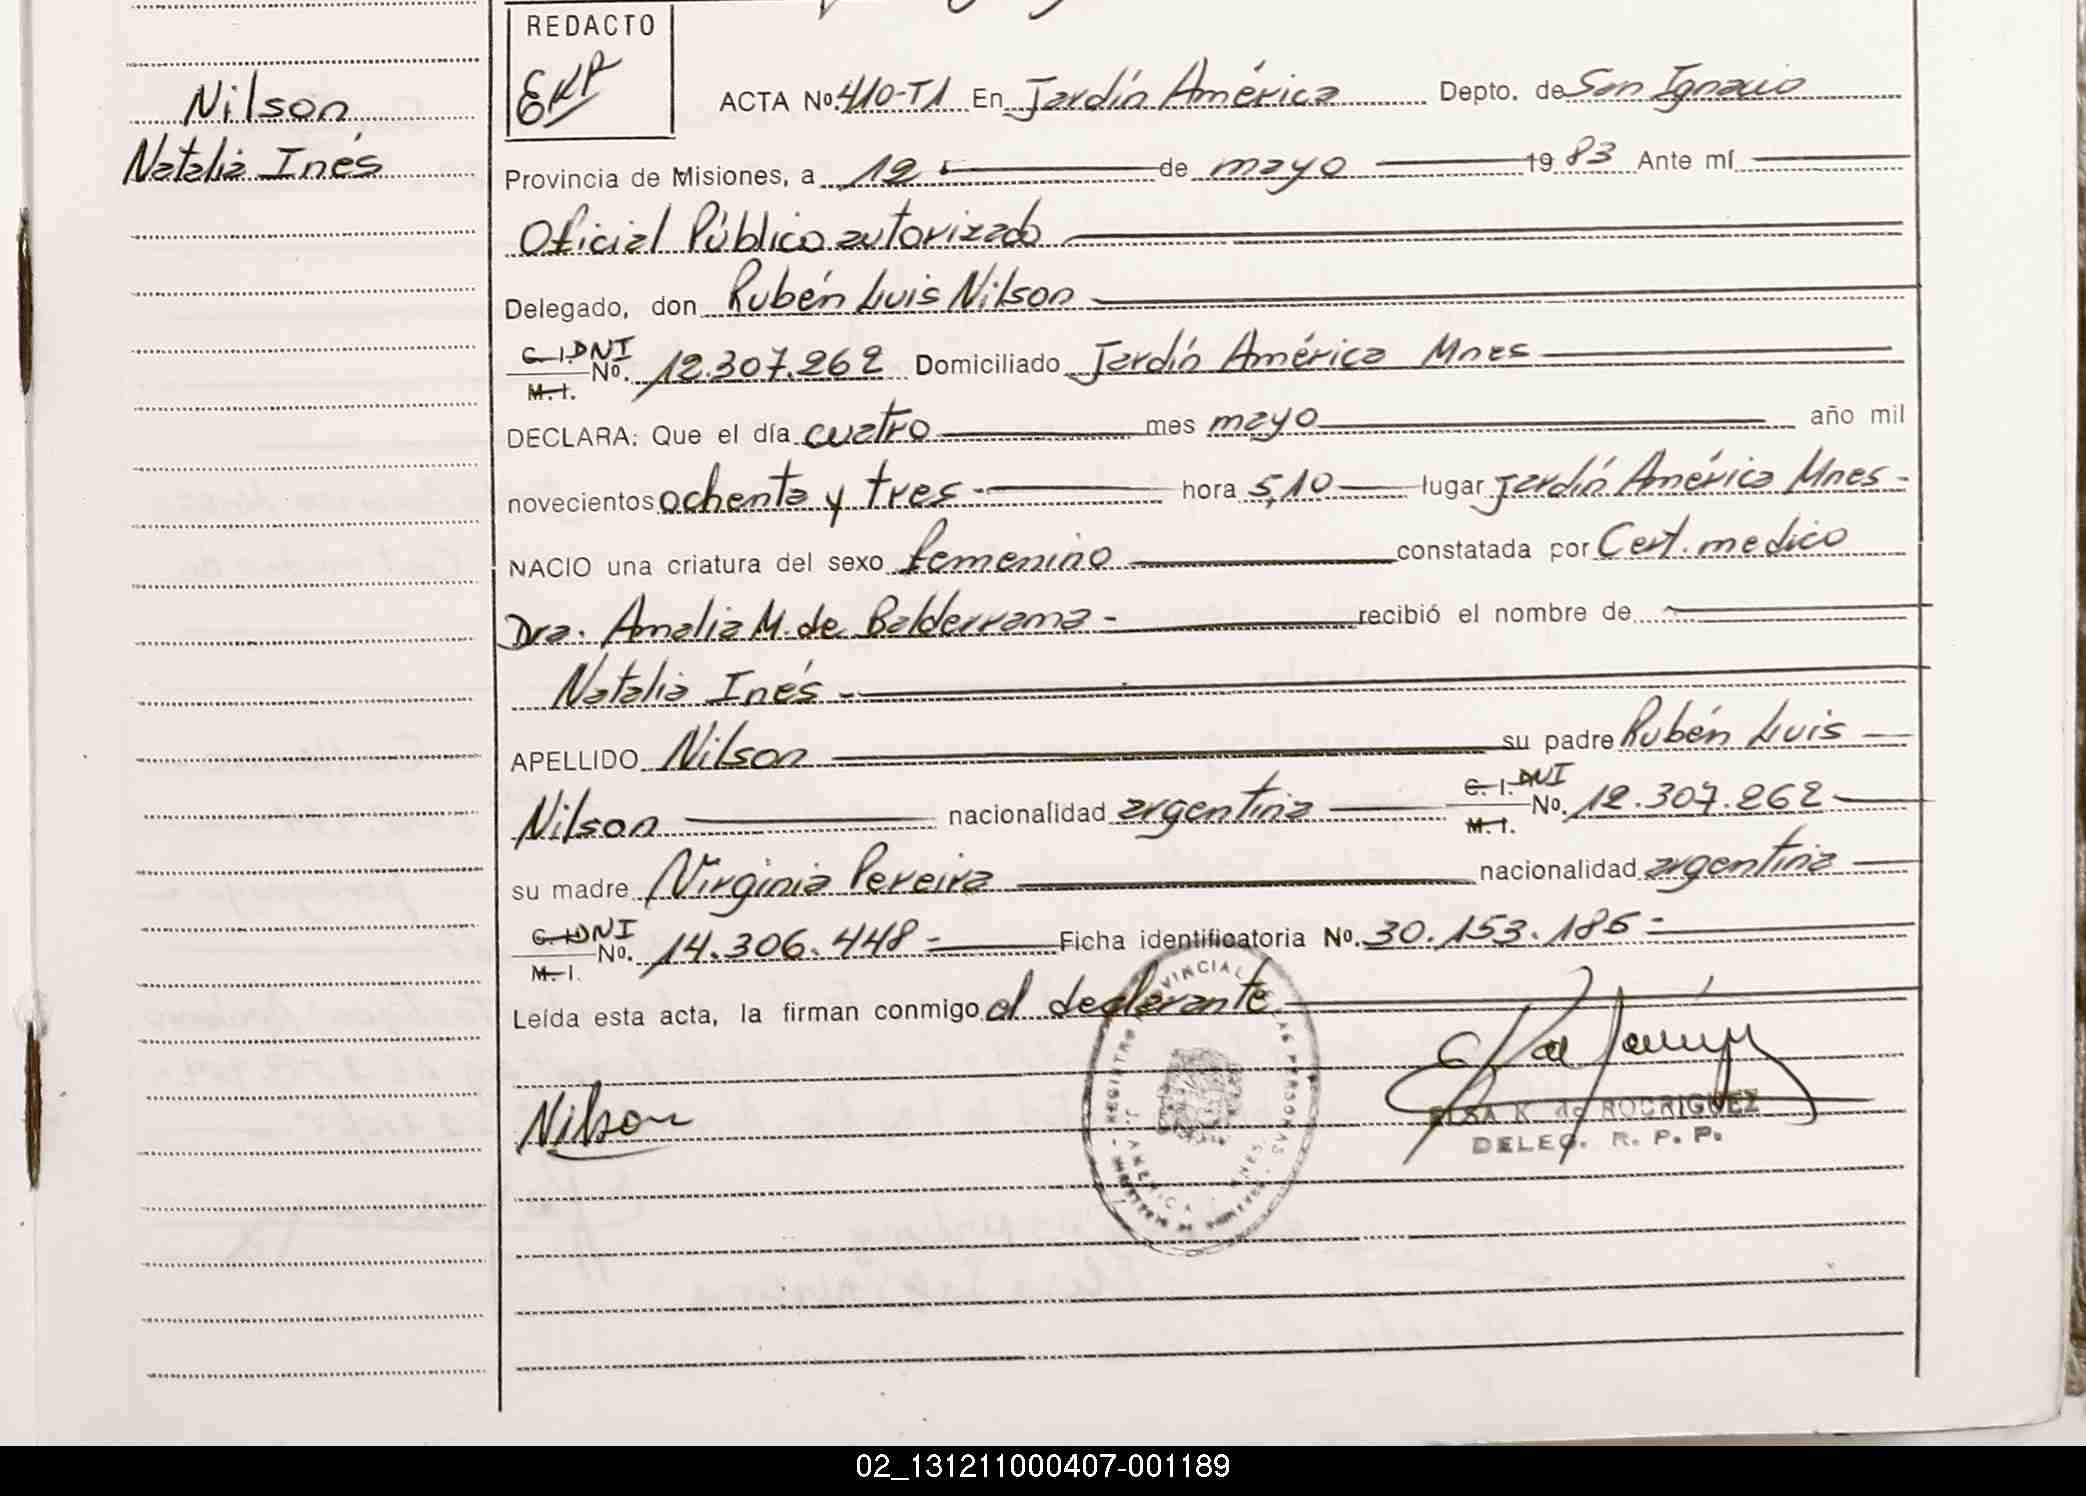 Nilson
Natalia Inés
REDACTO
EKR
ACTA No. 410-T1 En Jardín América Depto. de San Ignacio
Provincia de Misiones, a 12 de mayo 1983 Ante mí
Oficial Público autorizado
Delegado, don Rubén Luis Nilson
C. I. DNI
M. I. No. 12.307.262 Domiciliado Jardín América Mnes
DECLARA: Que el día cuatro mes mayo año mil
novecientos ochenta y tres - hora 5,10 lugar Jardín América Mnes -
NACIO una criatura del sexo femenino constatada por Cert. medico
Dra. Amalia M. de Balderrama - recibió el nombre de
Natalia Inés -
APELLIDO Nilson su padre Rubén Luis
Nilson nacionalidad argentina C. I. DNI
M. I. No. 12.307.262
su madre Virginia Pereira nacionalidad argentina
C. I. DNI
M. I. No. 14.306.448 = Ficha identificatoria No. 30.153.186 =
Leída esta acta, la firman conmigo el declarante
Nilson
REGISTRO PROVINCIAL DE LAS PERSONAS
J. AMERICA MNES
ELSA K. de RODRIGUEZ
DELEG. R. P. P.
02_131211000407-001189